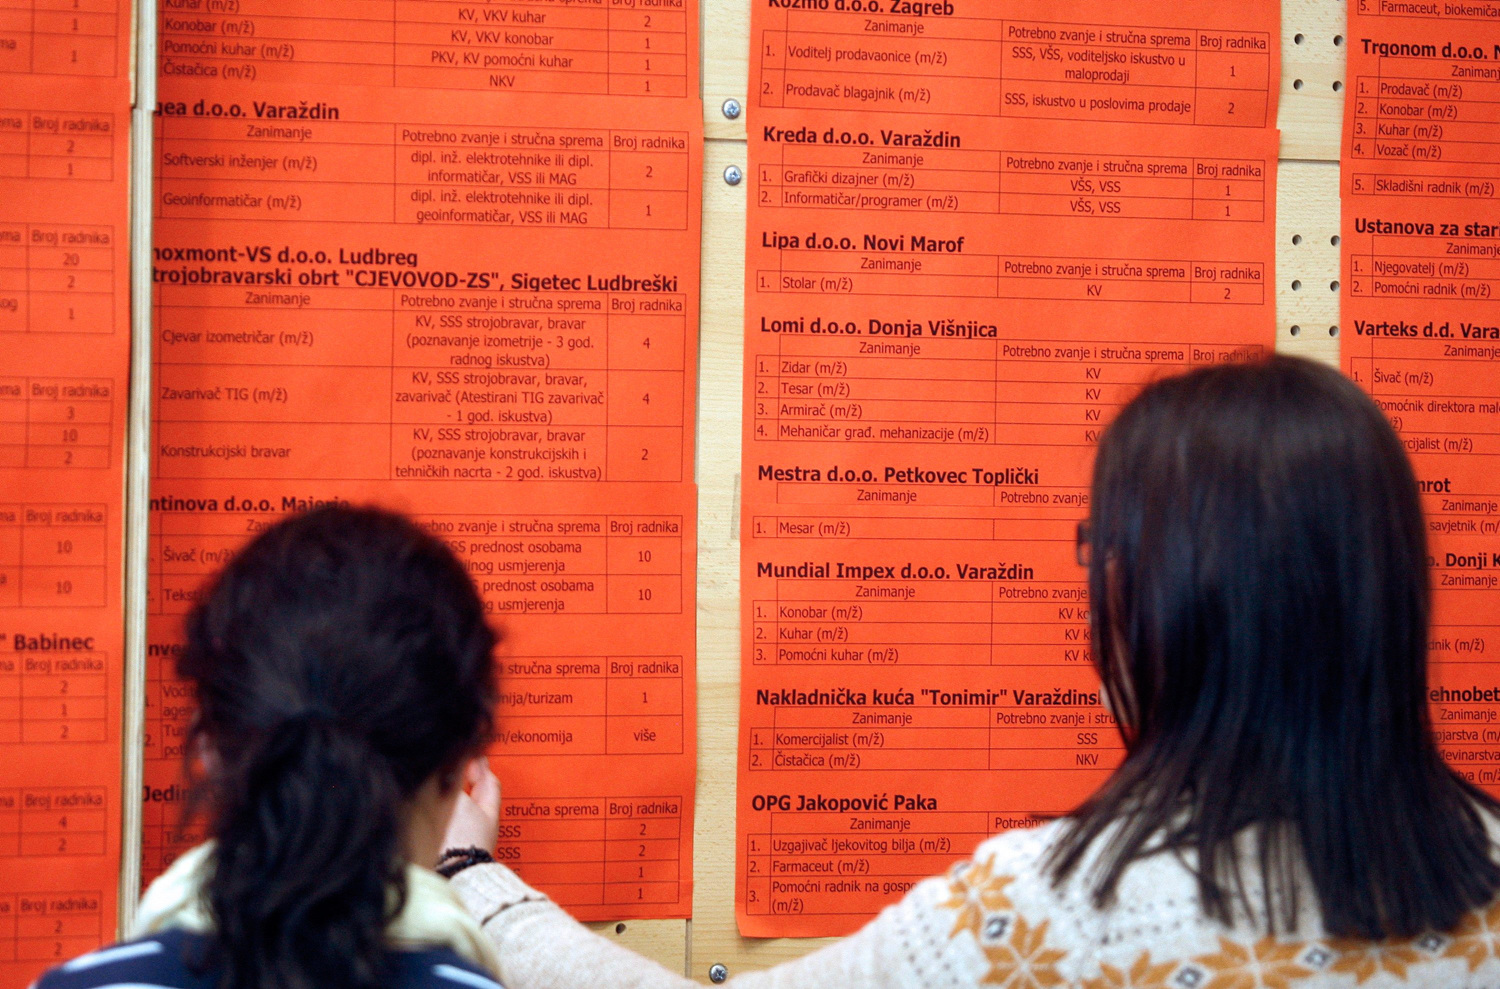 1
1
ma 1
ma Broj radnika
2
1
ma Broj radnika
20
2
1
ma Broj radnika
3
10
2
ma Broj radnika
10
10
" Babinec
ma Broj radnika
2
1
2
ma Broj radnika
4
2
ma Broj radnika
2
2
Kuhar (m/ž) KV, VKV kuhar 2
Konobar (m/ž) KV, VKV konobar 1
Pomoćni kuhar (m/ž) PKV, KV pomoćni kuhar 1
Čistačica (m/ž) NKV 1
gea d.o.o. Varaždin
Zanimanje Potrebno zvanje i stručna sprema Broj radnika
Softverski inženjer (m/ž) dipl. inž. elektrotehnike ili dipl. informatičar, VSS ili MAG 2
Geoinformatičar (m/ž) dipl. inž. elektrotehnike ili dipl. geoinformatičar, VSS ili MAG 1
noxmont-VS d.o.o. Ludbreg
trojobravarski obrt "CJEVOVOD-ZS", Sigetec Ludbreški
Zanimanje Potrebno zvanje i stručna sprema Broj radnika
Cjevar izometričar (m/ž) KV, SSS strojobravar, bravar (poznavanje izometrije - 3 god. radnog iskustva) 4
Zavarivač TIG (m/ž) KV, SSS strojobravar, bravar, zavarivač (Atestirani TIG zavarivač - 1 god. iskustva) 4
Konstrukcijski bravar KV, SSS strojobravar, bravar (poznavanje konstrukcijskih i tehničkih nacrta - 2 god. iskustva) 2
ntinova d.o.o. Majerje
stručna sprema Broj radnika
Šivač (m/ž) SS prednost osobama usmjerenja 10
prednost osobama usmjerenja 10
stručna sprema Broj radnika
mija/turizam 1
2. m/ekonomija više
Jedin
stručna sprema Broj radnika
SSS 2
SSS 2
1
1
Kozmo d.o.o. Zagreb
Zanimanje Potrebno zvanje i stručna sprema Broj radnika
1. Voditelj prodavaonice (m/ž) SSS, VŠS, voditeljsko iskustvo u maloprodaji 1
2. Prodavač blagajnik (m/ž) SSS, iskustvo u poslovima prodaje 2
Kreda d.o.o. Varaždin
Zanimanje Potrebno zvanje i stručna sprema Broj radnika
1. Grafički dizajner (m/ž) VŠS, VSS 1
2. Informatičar/programer (m/ž) VŠS, VSS 1
Lipa d.o.o. Novi Marof
Zanimanje Potrebno zvanje i stručna sprema Broj radnika
1. Stolar (m/ž) KV 2
Lomi d.o.o. Donja Višnjica
Zanimanje Potrebno zvanje i stručna sprema Broj radnika
1. Zidar (m/ž) KV
2. Tesar (m/ž) KV
3. Armirač (m/ž) KV
4. Mehaničar građ. mehanizacije (m/ž) KV
Mestra d.o.o. Petkovec Toplički
Zanimanje Potrebno zvanje
1. Mesar (m/ž)
Mundial Impex d.o.o. Varaždin
Zanimanje Potrebno zvanje
1. Konobar (m/ž) KV ko
2. Kuhar (m/ž) KV k
3. Pomoćni kuhar (m/ž) KV k
Nakladnička kuća "Tonimir" Varaždinsk
Zanimanje Potrebno zvanje i stru
1. Komercijalist (m/ž) SSS
2. Čistačica (m/ž) NKV
OPG Jakopović Paka
Zanimanje Potrebno
1. Uzgajivač ljekovitog bilja (m/ž)
2. Farmaceut (m/ž)
3. Pomoćni radnik na gospo (m/ž)
5. Farmaceut, biokemičar
Trgonom d.o.o. N
Zanimanj
1. Prodavač (m/ž)
2. Konobar (m/ž)
3. Kuhar (m/ž)
4. Vozač (m/ž)
5. Skladišni radnik (m/ž)
Ustanova za star
Zanimanje
1. Njegovatelj (m/ž)
2. Pomoćni radnik (m/ž)
Varteks d.d. Vara
Zanimanje
1. Šivač (m/ž)
Pomoćnik direktora mal
rcijalist (m/ž)
nrot
Zanimanje
savjetnik (m/
o. Donji K
Zanimanje
dnik (m/ž)
Tehnobet
Zanimanje
ojarstva (m/
đevinarstva
tva (m/ž)